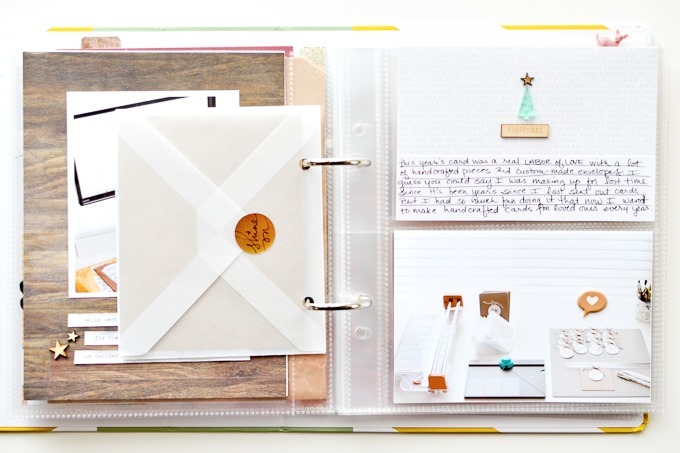 shine
on
for the
#HAPPYMAIL
this year's card was a real LABOR of LOVE with a lot
of handcrafted pieces and custom-made envelopes. I
guess you could say I was making up for lost time
since it's been years since I last sent out cards.
But I had so much fun doing it that now I want
to make handcrafted cards for loved ones every year